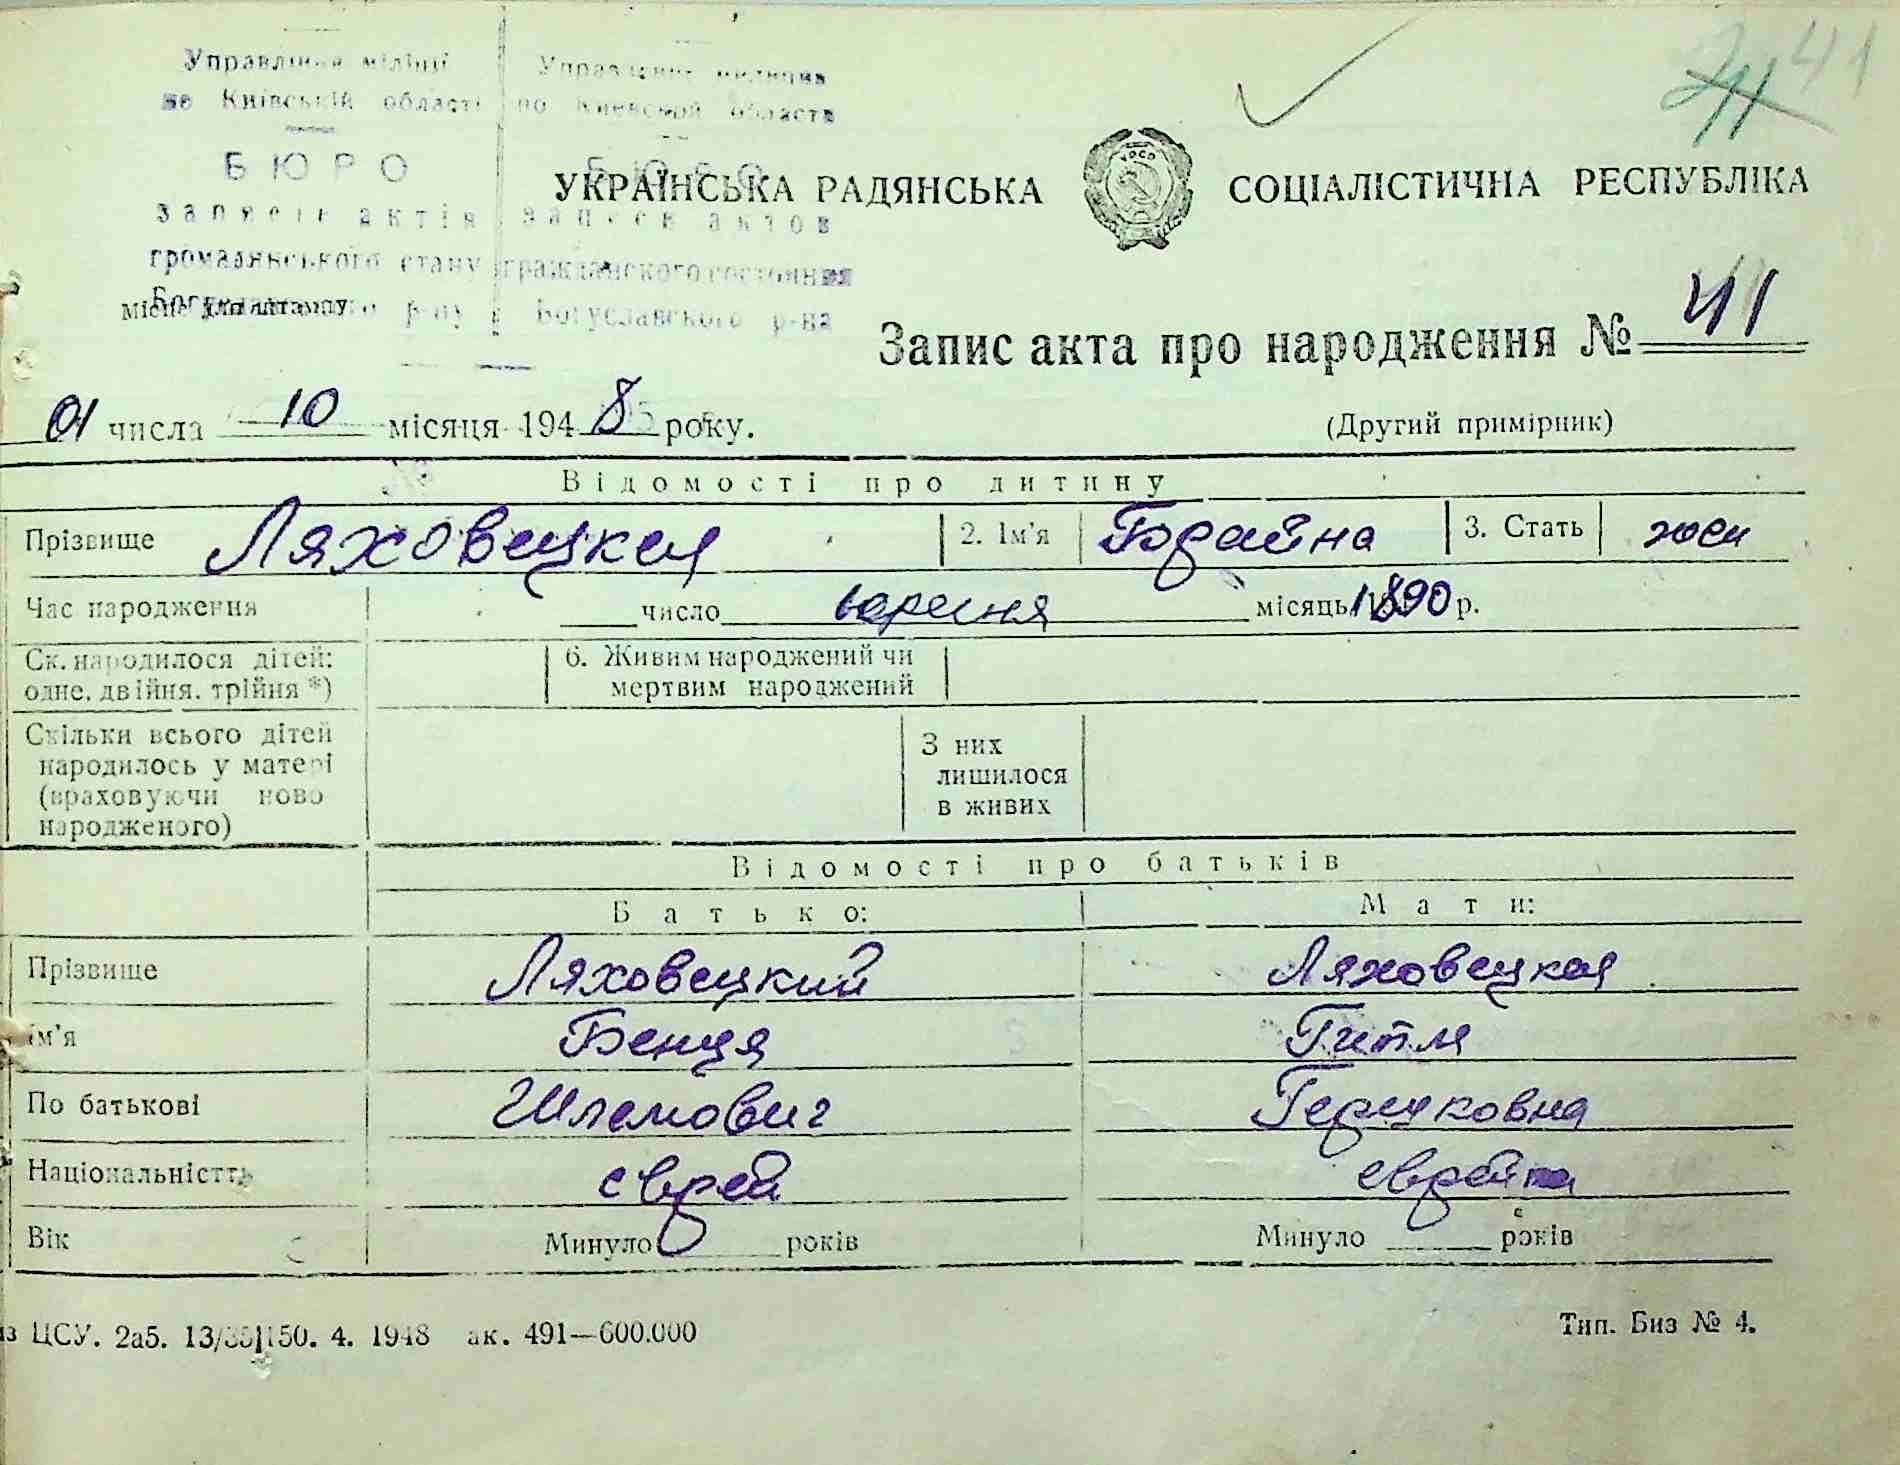 Управління міліції
по Київській області
БЮРО
записів актів
громадянського стану
Богуславського р-ну
Управление милиции
по Киевской области
БЮРО
записи актов
гражданского состояния
Богуславского р-на
місце для штампу
41
УКРАЇНСЬКА РАДЯНСЬКА СОЦІАЛІСТИЧНА РЕСПУБЛІКА
УРСР
Запис акта про народження № 41
01 числа 10 місяця 1948 року.
(Другий примірник)
Відомості про дитину
Прізвище Ляховецкая 2. Ім'я Брайна 3. Стать жен
Час народження число місяць 1890 р.
Ск. народилося дітей: 6. Живим народжений чи
одне, двійня, трійня *) мертвим народжений
Скільки всього дітей
народилось у матері
(враховуючи ново
народженого)
З них
лишилося
в живих
Відомості про батьків
Батько: Мати:
Прізвище Ляховецкий Ляховецкая
Ім'я Бенця Гитля
По батькові Шлемович Гершковна
Національність еврей еврейка
Вік Минуло років Минуло років
ЦСУ. 2а5. 13/35 150. 4. 1948 ак. 491—600.000
Тип. Биз № 4.